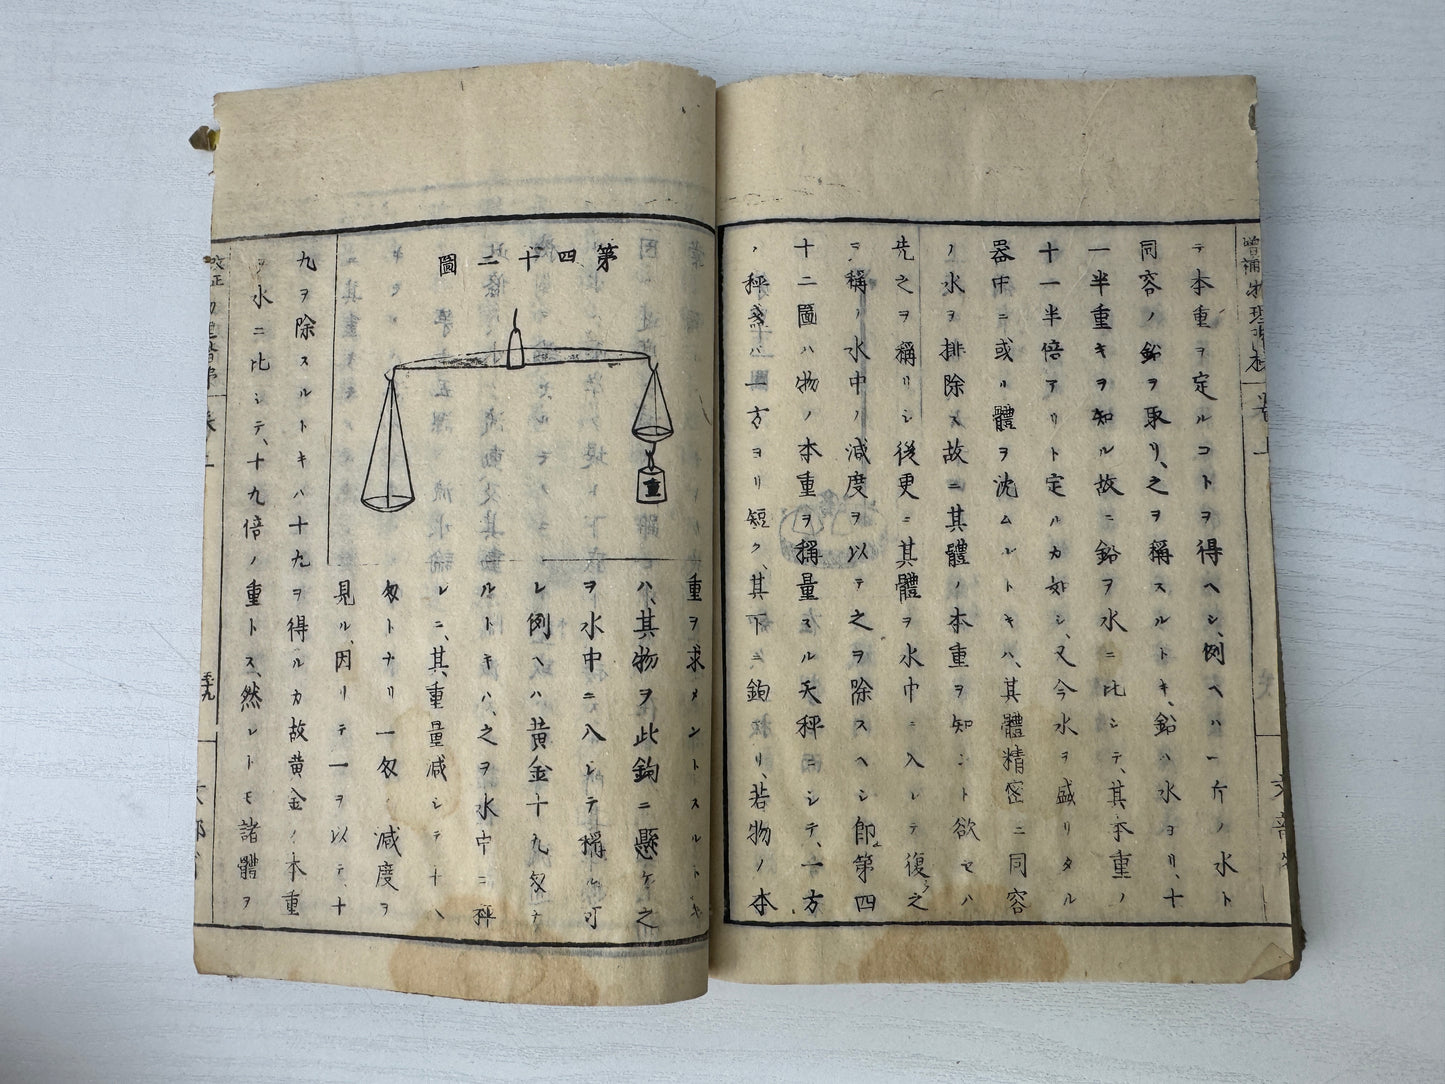 テ本重ヲ定ルコトヲ得ヘシ、例ヘハ一斤ノ水ト
同容ノ鉛ヲ取リ、之ヲ稱スルトキ、鉛ハ水ヨリ、十
一半重キヲ知ル故ニ鉛ヲ水ニ比シテ、其本重ノ
十一半倍アリト定ルカ如シ、又今水ヲ盛リタル
器中ニ或ル體ヲ沈ムルトキハ、其體精密ニ同容
ノ水ヲ排除ス故ニ其體ノ本重ヲ知ント欲セハ
先之ヲ稱リシ後更ニ其體ヲ水中ニ入レテ復之
ヲ稱リ水中ノ減度ヲ以テ之ヲ除スヘシ即第四
十二圖ハ物ノ本重ヲ稱量スル天秤ニシテ、一方
ノ秤盞ハ一方ヨリ短ク、其下ニ鉤
リ、若物ノ本
增補
卷上
第四十二圖
重
重ヲ求メントスルトキ
ハ、其物ヲ此鉤ニ懸ケ之
ヲ水中ニ入レテ稱ル可
シ例ヘハ黄金十九匁
ルトキハ、之ヲ水中ニ秤
レニ、其重量減シテ十八
匁トナリ一匁ノ減度ヲ
見ル、因リテ一ヲ以テ、十
九ヲ除スルトキハ十九ヲ得ルカ故黄金ノ本重
ヲ水ニ比シテ、十九倍ノ重トス、然レトモ諸體ヲ
改正